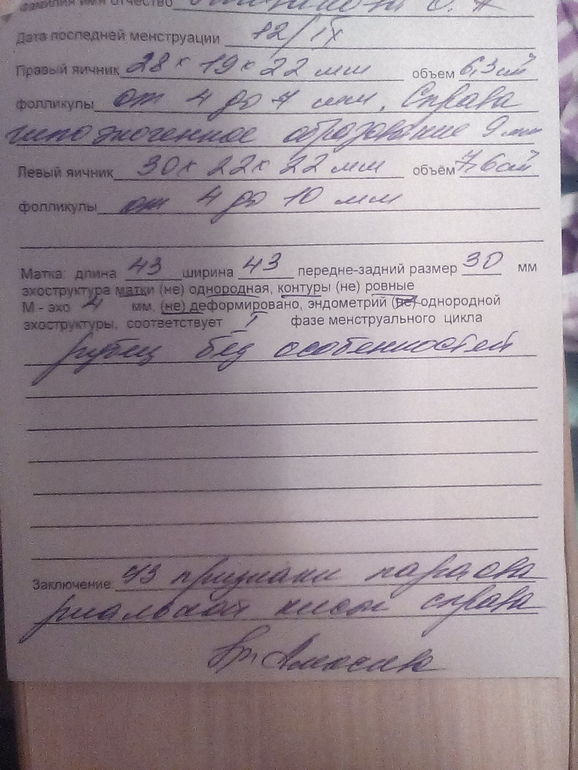 фамилия имя отчество
Дата последней менструации 12/IX
Правый яичник 28 х 19 х 22 мм объем 6,3 см³
фолликулы от 4 до 7 мм. Справа
гипоэхогенное образование 9 мм
Левый яичник 30 х 22 х 22 мм объём 7,6 см³
фолликулы от 4 до 10 мм
Матка: длина 43 ширина 43 передне-задний размер 30 мм
эхоструктура матки (не) однородная, контуры (не) ровные
М - эхо 4 мм, (не) деформировано, эндометрий (не) однородной
эхоструктуры, соответствует I фазе менструального цикла
рубец без особенностей
Заключение УЗ признаки параова
риальной кисты справа
Вр.